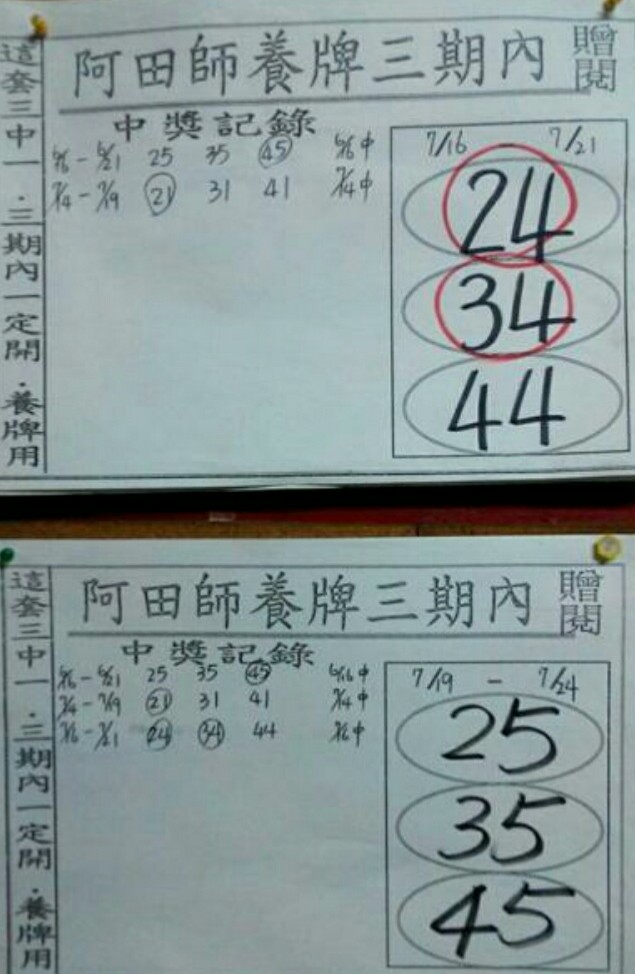 這套三中一．三期內一定開．養牌用
阿田師養牌三期內
贈閱
中獎記錄
6/16 - 6/21 25 35 45 6/16中
7/4 - 7/9 21 31 41 7/4中
7/16 - 7/21
24
34
44
這套三中一．三期內一定開．養牌用
阿田師養牌三期內
贈閱
中獎記錄
6/16 - 6/21 25 35 45 6/16中
7/4 - 7/9 21 31 41 7/4中
7/16 - 7/21 24 34 44 7/16中
7/19 - 7/24
25
35
45